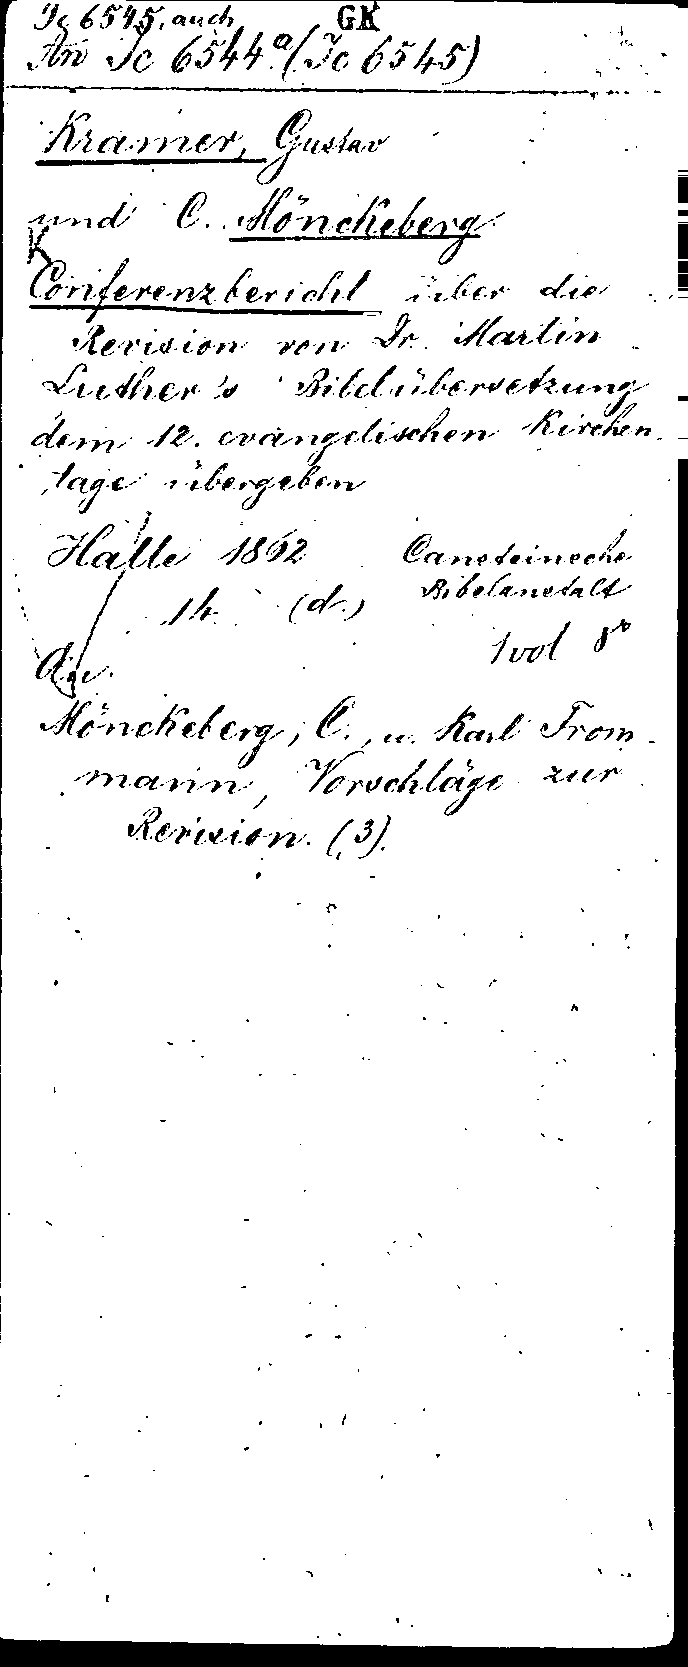 Ic 6545, auch GK
An Ic 6544a (Ic 6545)
Kramer, Gustav
und C. Mönckeberg
K
Conferenzbericht über die
Revision von Dr. Martin
Luther's Bibelübersetzung
dem 12. evangelischen Kirchen
tage übergeben
Halle 1862 Cansteinsche
Bibelanstalt
14. (d.)
1 vol 8°
An:
Mönckeberg, C., u. Karl From-
mann, Vorschläge zur
Revision. (3).